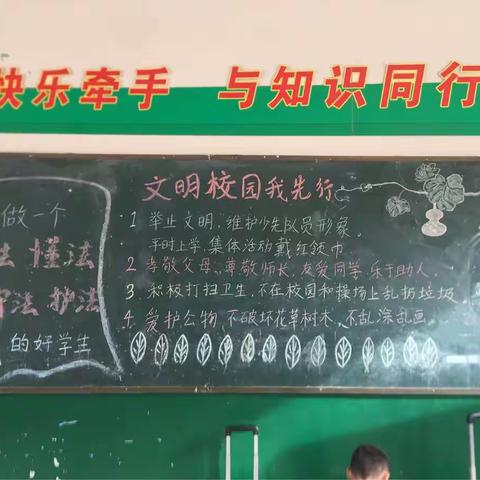 快乐牵手 与知识同行
文明校园我先行
1 举止文明,维护少先队员形象。
平时上学、集体活动戴红领巾。
2 孝敬父母、尊敬师长、友爱同学、乐于助人。
3 积极打扫卫生,不在校园和操场上乱扔垃圾
4. 爱护公物,不破坏花草树木、不乱涂乱画
做一个
法 懂法
守法 护法
的好学生